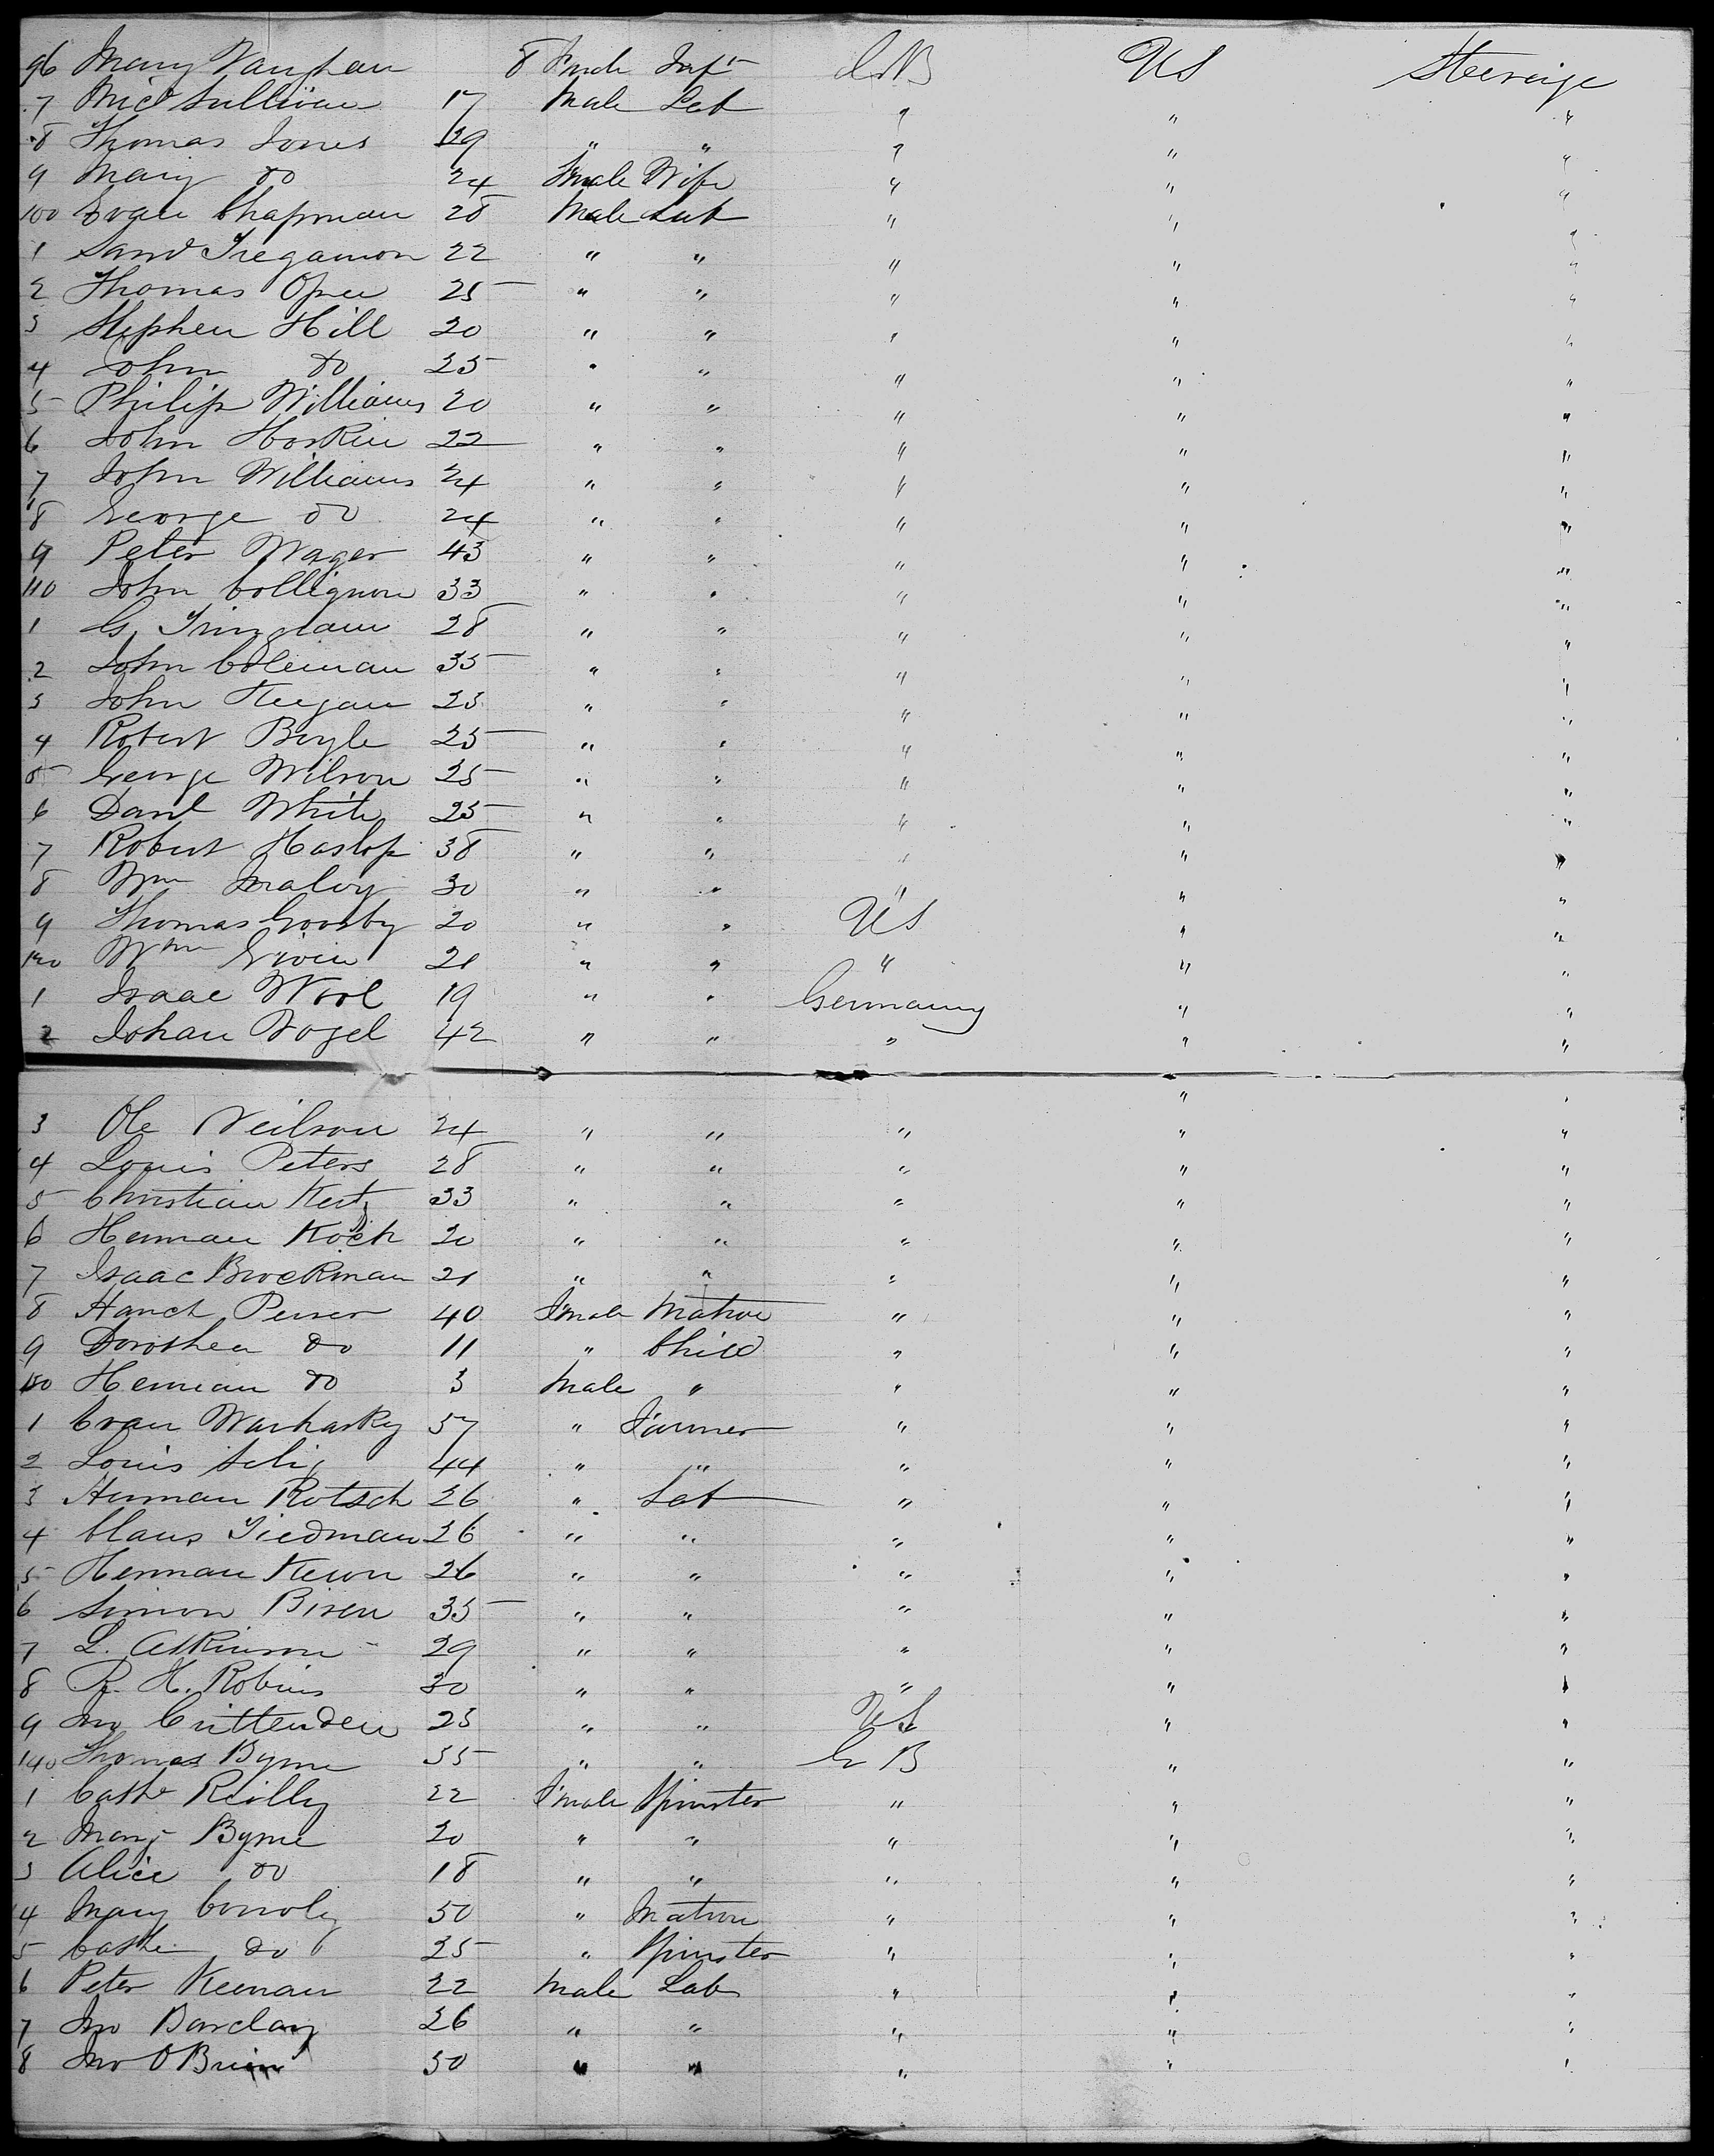 96 Mary Vaughan 8 Fmale Inft Gr B US Steerage
7 Micl Sullivan 17 Male Lab " " "
8 Thomas Jones 39 " " " " "
9 Mary do 24 Fmale Wife " " "
100 Evan Chapman 28 Male Lab " " "
1 Saml Tregamon 22 " " " " "
2 Thomas Opee 25 " " " " "
3 Stephen Hill 20 " " " " "
4 John do 25 " " " " "
5 Philip Williams 20 " " " " "
6 John Hoskin 22 " " " " "
7 John Williams 24 " " " " "
8 George do 24 " " " " "
9 Peter Wager 43 " " " " "
110 John Collignon 33 " " " " "
1 G. 28 " " " " "
2 John Coleman 35 " " " " "
3 John Keegan 23 " " " " "
4 Robert Boyle 25 " " " " "
5 George Wilson 25 " " " " "
6 Danl White 25 " " " " "
7 Robert Haslop 38 " " " " "
8 Wm Maloy 30 " " " " "
9 Thomas Goosby 20 " " US " "
120 Wm Givin 21 " " " " "
1 Isaac Wool 19 " " Germany " "
2 Johan Vogel 42 " " " " "
3 Ole Neilson 24 " " " " "
4 Louis Peters 28 " " " " "
5 Christian Kertz 33 " " " " "
6 Herman Koch 20 " " " " "
7 Isaac Brockman 21 " " " " "
8 Hanch 40 Fmale Matron " " "
9 Dorothea do 11 " Child " " "
130 Herman do 3 Male " " " "
1 Evan Warharsky 57 " Farmer " " "
2 Louis Selig 44 " " " " "
3 Herman Rotsch 26 " Lab " " "
4 Claus Tiedman 26 " " " " "
5 Herman Keon 26 " " " " "
6 Simon Biren 35 " " " " "
7 L. Atkinson 29 " " " " "
8 R. H. Robins 30 " " " " "
9 Jno Crittenden 23 " " US " "
140 Thomas Byrne 35 " " Gr B " "
1 Cathe Reilly 22 Fmale Spinster " " "
2 Mary Byrne 20 " " " " "
3 Alice do 18 " " " " "
4 Mary Connoly 50 " Matron " " "
5 Cathe do 25 " Spinster " " "
6 Peter Keenan 22 Male Lab " " "
7 Jno Barclay 26 " " " " "
8 Jno O Brien 30 " " " " "